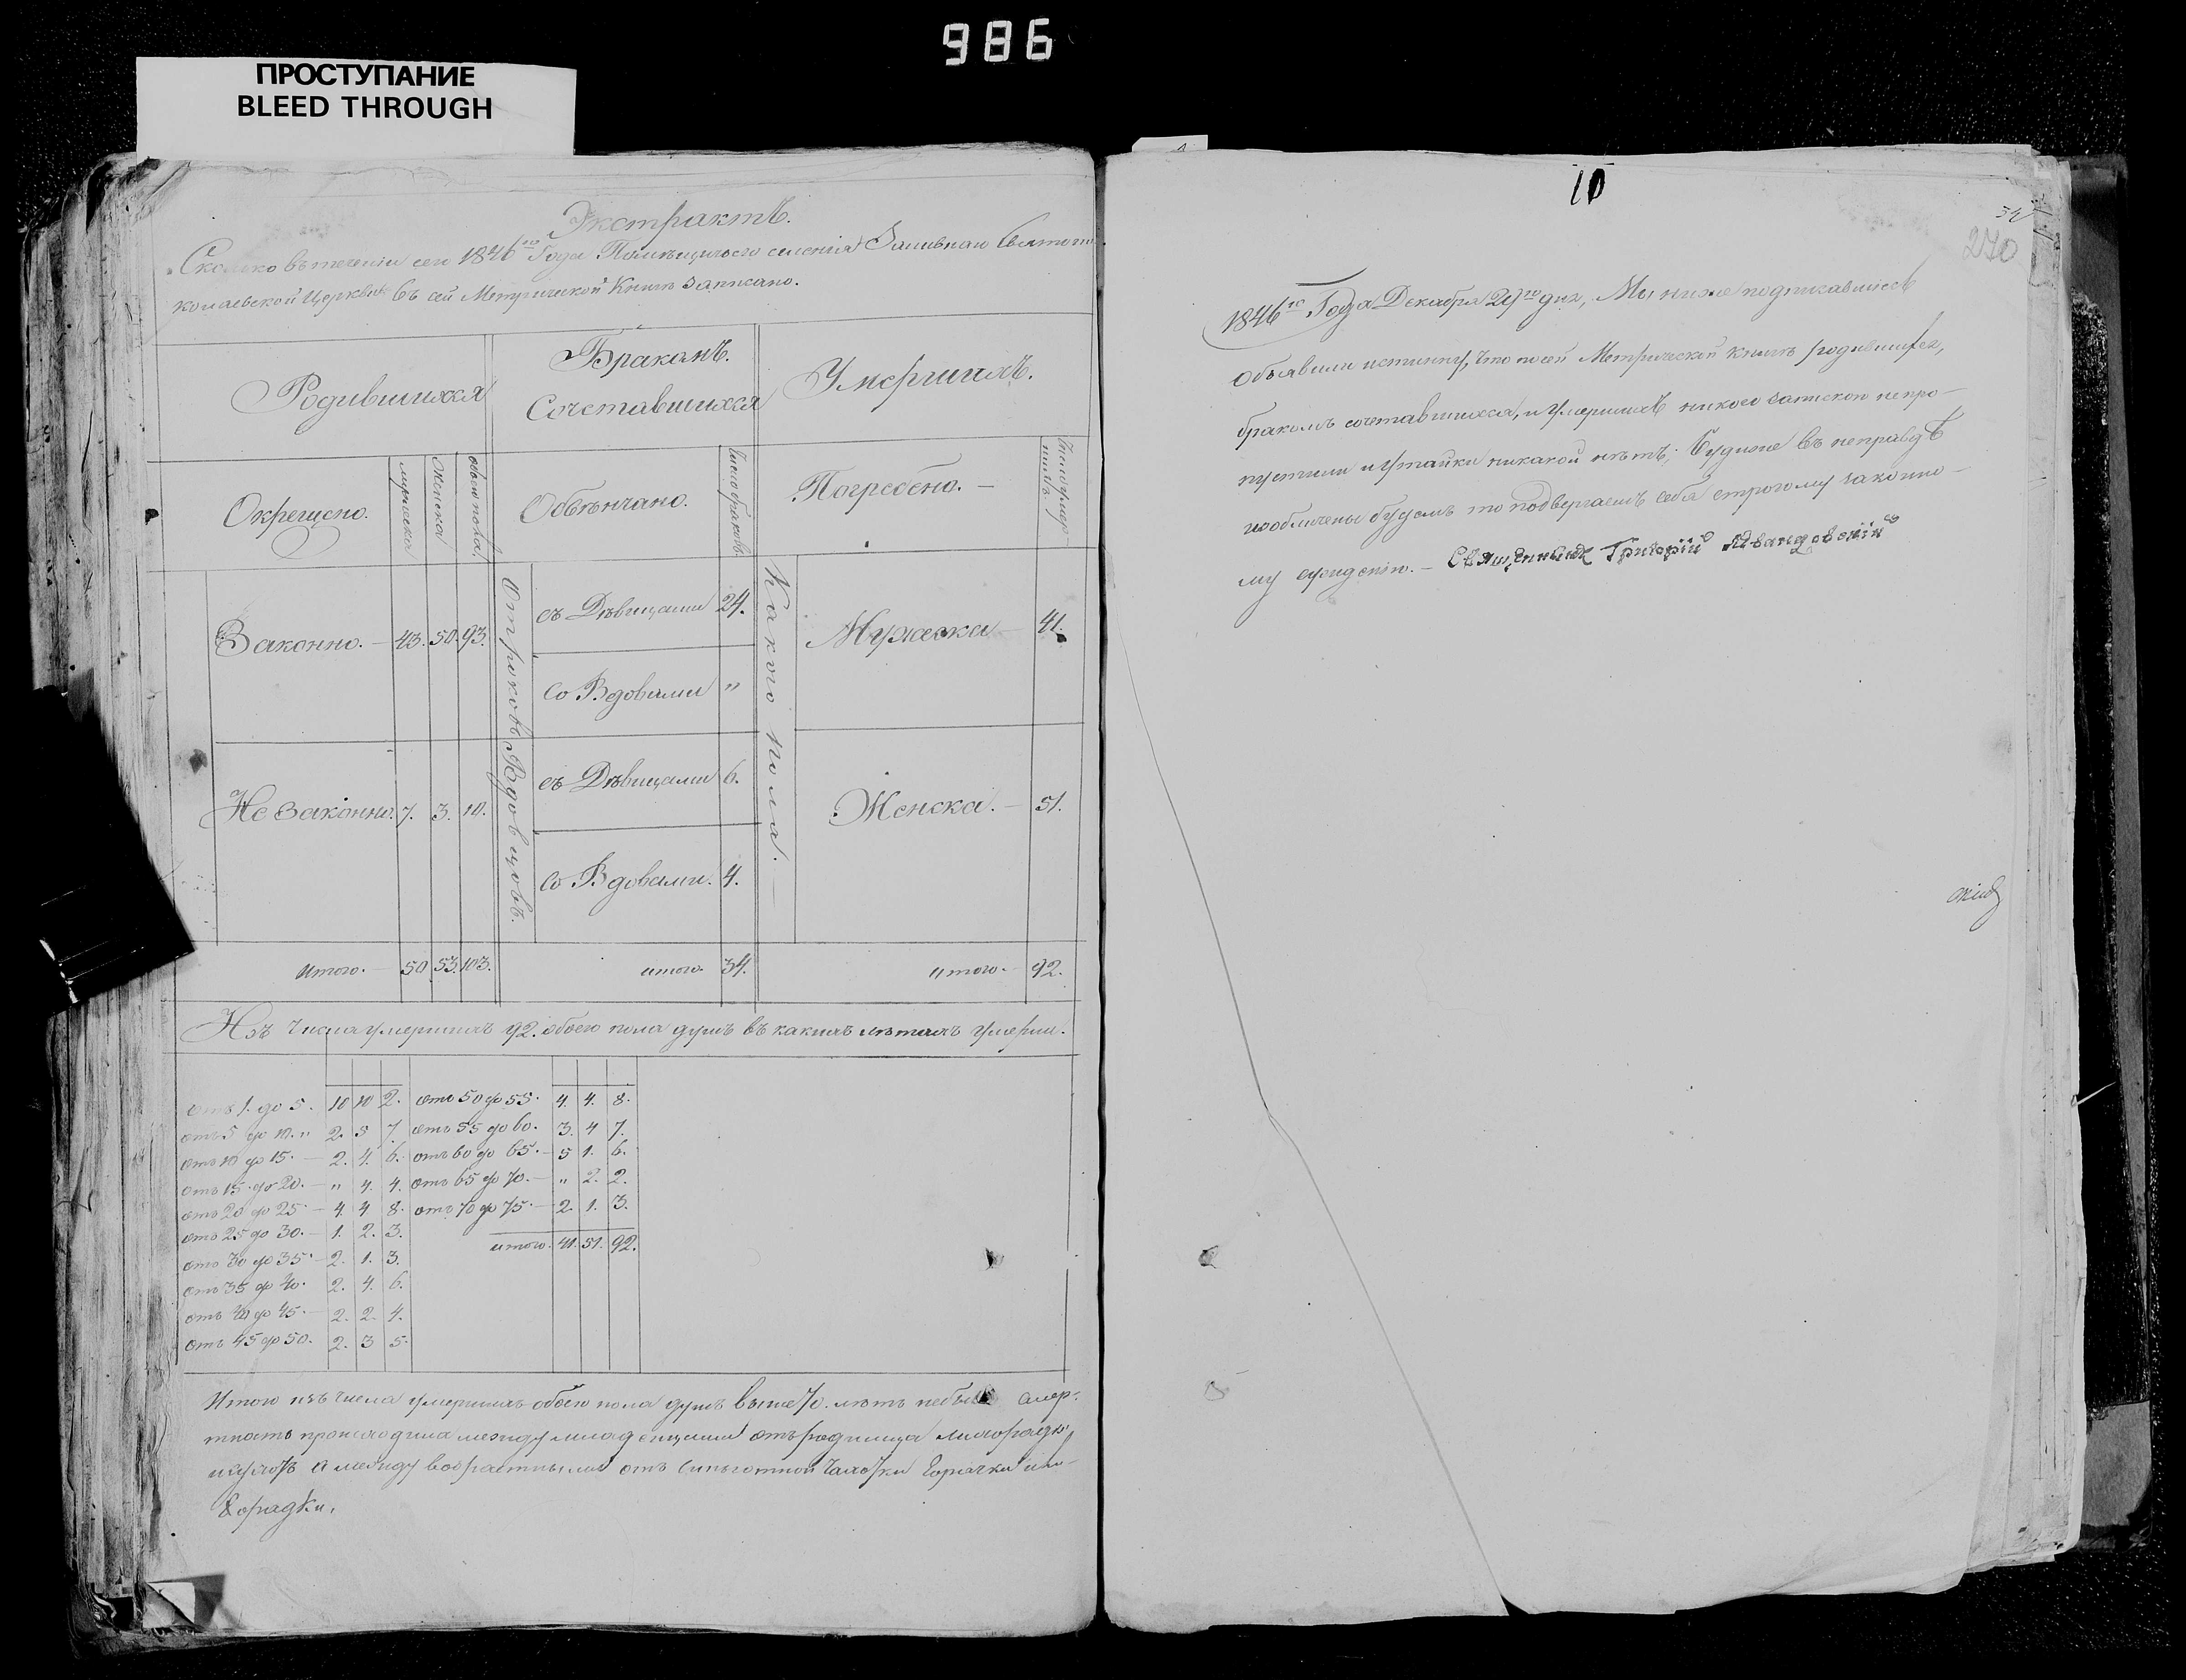 986
ПРОСТУПАНИЕ
BLEED THROUGH
Экстрактъ.
Сколько въ теченіи сего 1846го Года Помѣщичьего селенія Заливнаго Свято
колаевской Церкви въ сей Метрической Книгѣ записано.
Родившихся
Бракомъ.
Сочетавшихся
Умершихъ.
Окрещено.
мужеска
Женска
обоего пола
Обвѣнчано.
Число браковъ.
Погребено. —
Число умер
шихъ.
Законно. — 43. 50. 93.
Не законно. 7. 3. 10.
Отроковъ
Вдовцовъ.
съ Дѣвицами 24.
Со Вдовами "
съ Дѣвицами 6.
Со Вдовами. 4.
Какого пола. —
Мужеска — 41.
Женска. — 51.
Итого. — 50 53. 103.
итого. 34.
итого. — 92.
Изъ числа умершихъ 92. обоего пола душъ въ какихъ лѣтахъ умерли.
отъ 1. до 5. 10 10 2. отъ 50 до 55. 4. 4. 8.
отъ 5 до 10. " 2. 5 7. отъ 55 до 60. 3. 4 7.
отъ 10 до 15. — 2. 4. 6. отъ 60 до 65. — 5 1. 6.
отъ 15 до 20. — " 4. 4. отъ 65 до 70. — " 2. 2.
отъ 20 до 25 — 4. 4 8. отъ 70 до 75. — 2. 1. 3.
отъ 25 до 30. — 1. 2. 3. итого. 41. 51. 92.
отъ 30 до 35 — 2. 1. 3.
отъ 35 до 40. 2. 4. 6.
отъ 40 до 45. — 2. 2. 4.
отъ 45 до 50. 2. 3 5.
Итого изъ числа умершихъ обоего пола душъ выше 70. лѣтъ небыло смер-
тность происходила между младенцами отъ родимца лихорадки
а между возрастными отъ чахотки Горячки и ли-
хорадки.
10
54
270
1846го Года Декабря 29го дня, Мы ниже подписавшіесь
объявили истинну, что по сей Метрической книгѣ родившихся,
бракомъ сочетавшихся, и Умершихъ никого запискою непро-
пустили и Утайки никакой нѣтъ; буде же въ неправдѣ
изобличены будемъ то подвергаемъ себя строгому законно-
му сужденію. — Священникъ Григорій